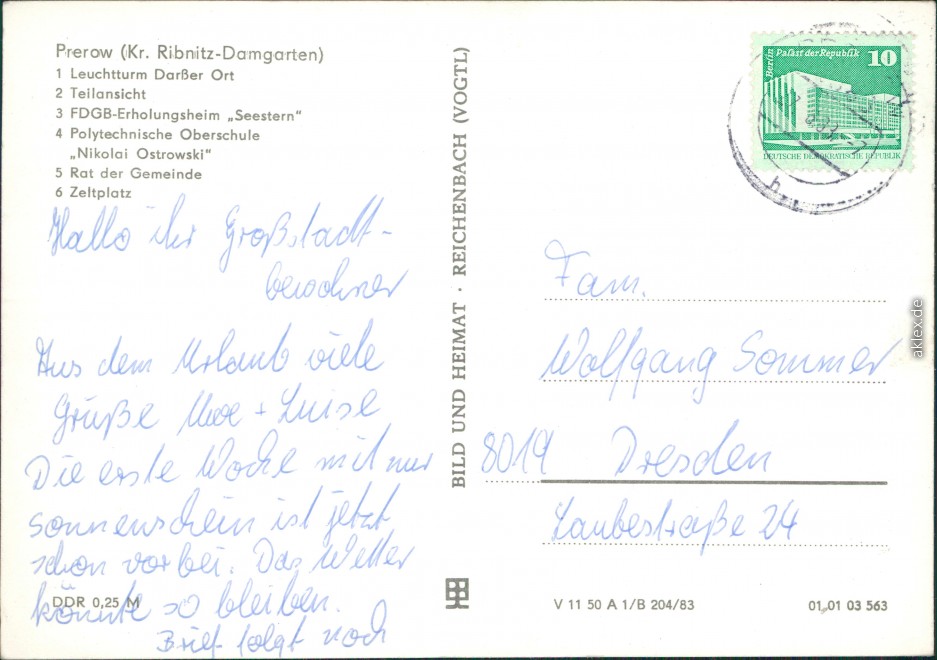 Prerow (Kr. Ribnitz-Damgarten)
1 Leuchtturm Darßer Ort
2 Teilansicht
3 FDGB-Erholungsheim „Seestern“
4 Polytechnische Oberschule
„Nikolai Ostrowski“
5 Rat der Gemeinde
6 Zeltplatz
Hallo ihr Großstadt-
bewohner
Aus dem Urlaub viele
Grüße Uwe + Luise
Die erste Woche mit nur
Sonnenschein ist jetzt
schon vorbei. Das Wetter
könnte so bleiben.
Brief folgt noch
DDR 0,25 M
BILD UND HEIMAT · REICHENBACH (VOGTL)
Berlin
Palast der Republik
10
DEUTSCHE DEMOKRATISCHE REPUBLIK
Fam.
Wolfgang Sommer
8019 Dresden
Laubestraße 24
V 11 50 A 1/B 204/83
01 01 03 563
aklex.de